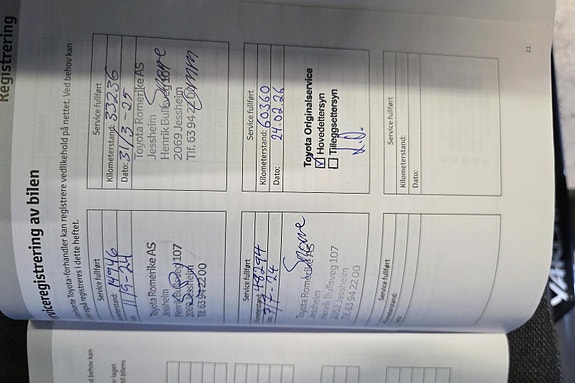 Registrering
viceregistrering av bilen
Toyota-forhandler kan registrere vedlikehold på nettet. Ved behov kan
registreres i dette heftet.
Service fullført
14946
Toyota Romerike AS
Jessheim
Henrik Bullsveg 107
2069 Jessheim
Tlf. 63 94 22 00
Service fullført
Kilometerstand: 33236
Dato: 31/3-25
Toyota Romerike AS
Jessheim
Henrik Bullsveg 107
2069 Jessheim
Tlf. 63 94 22 00
Service fullført
48294
Toyota Romerike AS
Jessheim
Henrik Bullsveg 107
2069 Jessheim
Tlf. 63 94 22 00
Service fullført
Kilometerstand: 60360
Dato: 24.02.26
Toyota Originalservice
Hovedettersyn
Tilleggsettersyn
Service fullført
Service fullført
Kilometerstand:
Dato:
21